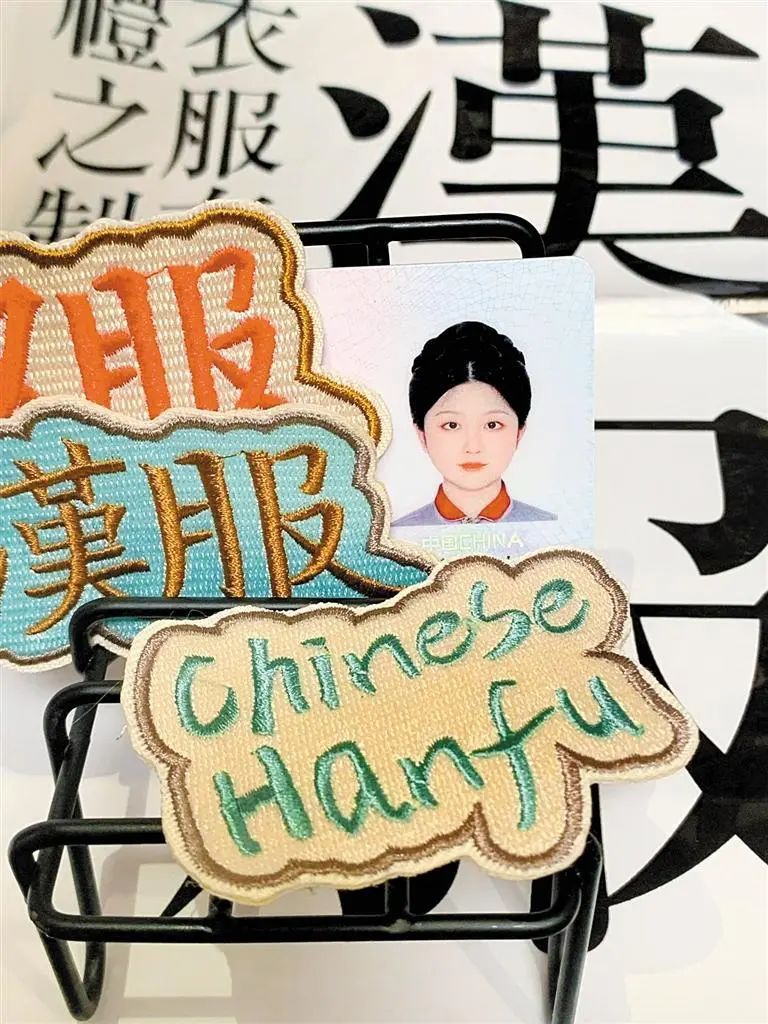 漢
衣服
禮之
服
漢服
中国CHINA
Chinese
Hanfu